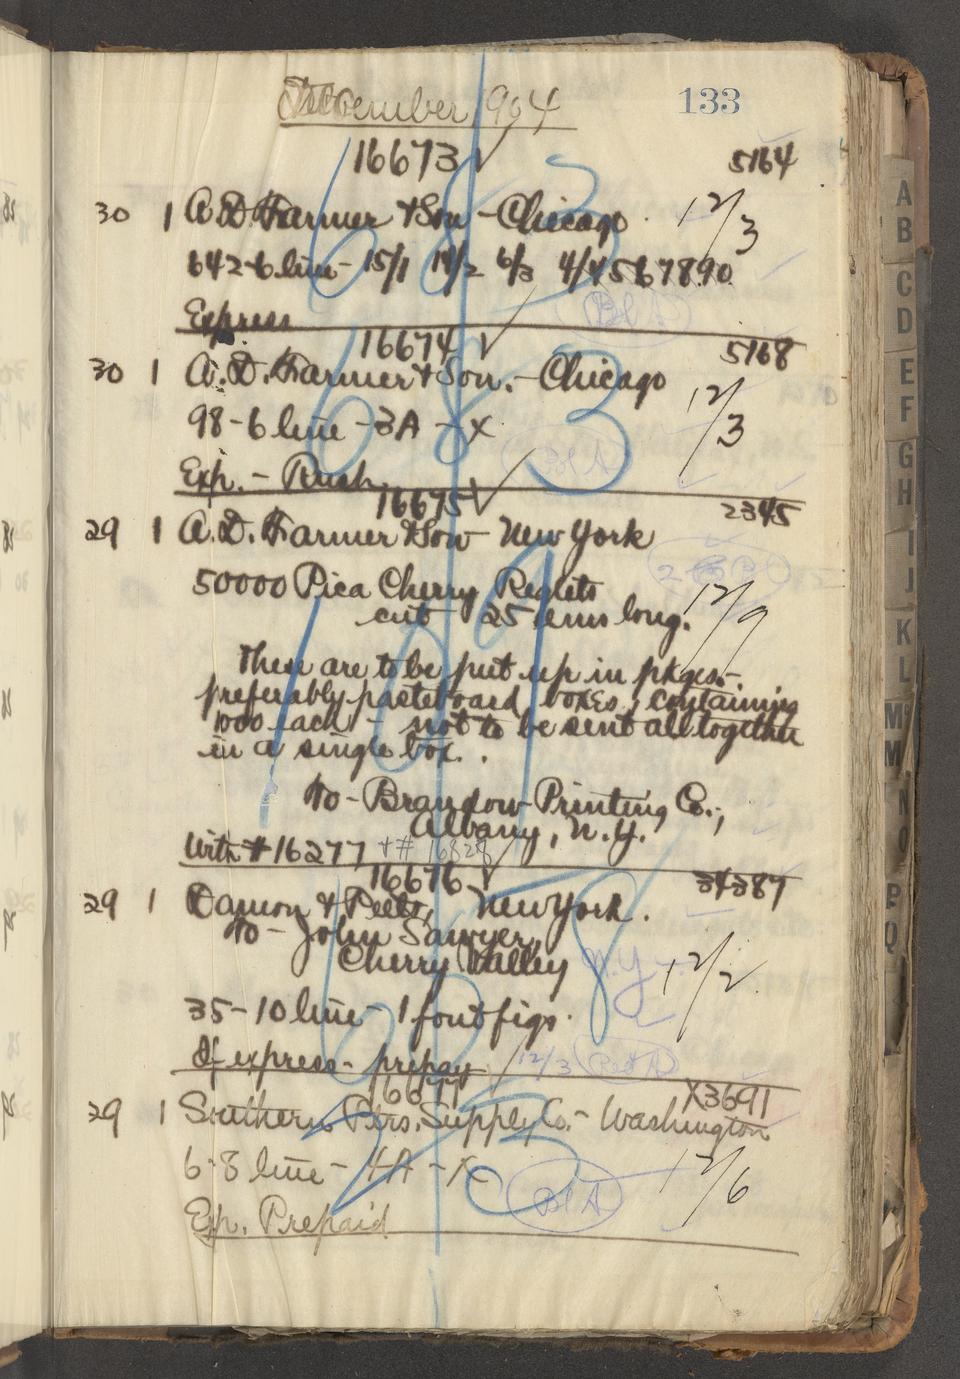 December 1904
133
16673 ✓
5164
30 1 A. D. Farmer & Son - Chicago
12/3
642 - 6 line - 15/1 14/2 6/3 4/4 5 6 7 8 9 0
Bl A
Express
16674 ✓
5168
30 1 A. D. Farmer & Son. - Chicago
12/3
98 - 6 line - 3A - X
Bl A
Exp. - Rush.
16675 ✓
2345
29 1 A. D. Farmer & Son - New York
50000 Pica Cherry Reglets
12/9
cut 25 ems long.
These are to be put up in pkges -
preferably pasteboard boxes, containing
1000 each - not to be sent all together
in a single box.
To - Brandow Printing Co.,
Albany, N.Y.
With # 16277 + # 16828
16676 ✓
34387
29 1 Damon & Peets, New York.
To - John Sawyer,
Cherry Valley N.Y.
12/2
35 - 10 line - 1 font figs.
If express - prepay
12/3
16677
X3691
29 1 Southern Ptrs. Supply Co. - Washington
6 - 8 line - 4A - X
12/6
Bl A
Exp. Prepaid
A
B
C
D
E
F
G
H
I
J
K
L
M
M
N
O
P
Q